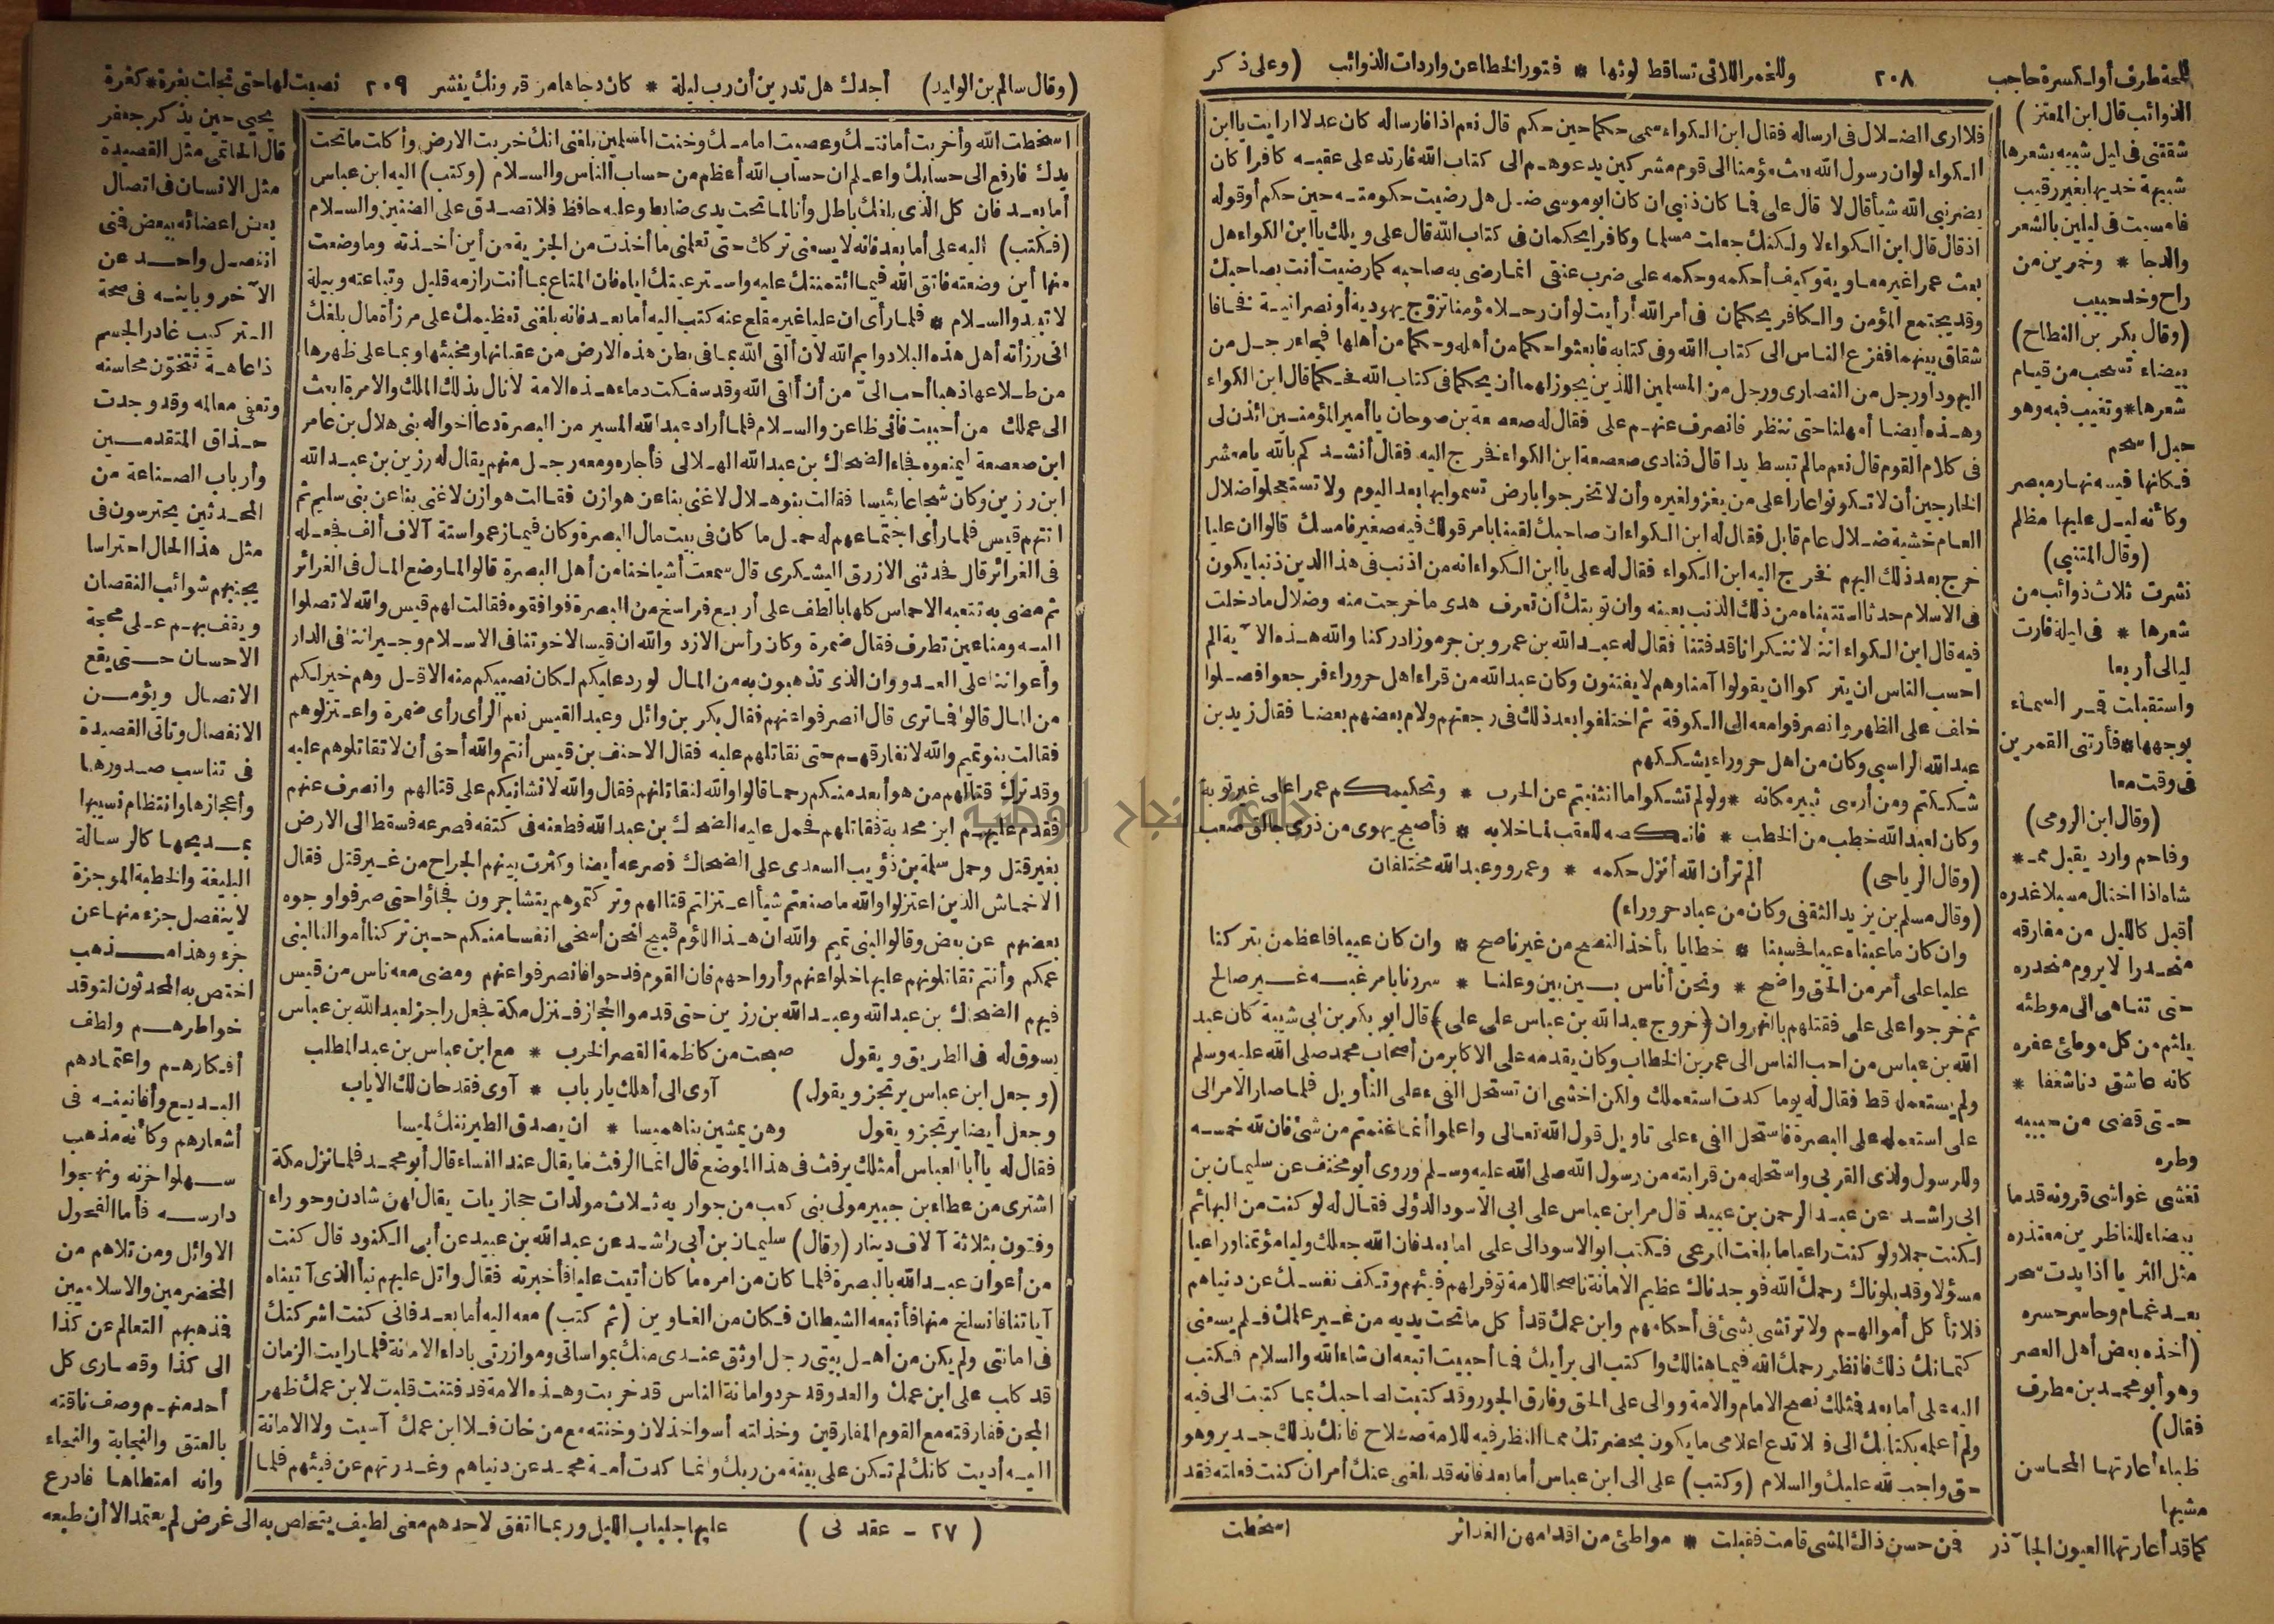 للمحة طرف أو لكسرة حاجب
٢٠٨
وللخمر اللاتى تساقط لوثها * فتور الخطا عن واردات الذوائب (وعلى ذكر
الذوائب قال ابن المعتز)
شققتنى فى ليل شبيه بشعرها
شبيهة خديها بغير رقيب
فامسيت فى ليلين بالشعر
والدجا * وخمرين من
راح وخد حبيب
(وقال بكر بن النطاح)
بيضاء تسحب من قيام
شعرها * وتغيب فيه وهو
جبل اسحم
فكانها فيه نهار مبصر
وكأنه ليل عليها مظلم
(وقال المتنبى)
نشرت ثلاث ذوائب من
شعرها * فى ليلة فارت
ليالى أربعا
واستقبلت قمر السماء
بوجهها * فأرتنى القمرين
فى وقت معا
(وقال ابن الرومى)
وفاحم وارد يقبل مم *
شاه اذا اختال مسبلا غدره
أقبل كالليل من مفارقه
منحدرا لا يروم منحدره
حتى تناهى الى موطئه
يلثم من كل موطئ عفره
كانه عاشق دنا شغفا *
حتى قضى من حبيبه
وطره
تغشى غواشى قرونه قدما
بيضاء للناظرين مقتدره
مثل الثريا اذا بدت سحر
بعد غمام وحاسر حسره
(أخذه بعض أهل العصر
وهو أبو محمد بن مطرف
فقال)
ظباء أعارتها المحاسن
مشيها
كما قد أعارتها العيون الجآذر
فمن حسن ذاك المشى قامت فقبلت * مواطئ من اقدامهن الغدائر
فلا ارى الضلال فى ارساله فقال ابن الكواء سمى حكما حين حكم قال نعم اذا فارساله كان عدلا ارايت يا ابن
الكواء لو ان رسول الله بعث مؤمنا الى قوم مشركين يدعوهم الى كتاب الله فارتد على عقبه كافرا كان
يضر نبى الله شيأ قال لا قال على فما كان ذنبى ان كان ابو موسى ضل هل رضيت حكومته حين حكم أو قوله
اذ قال قال ابن الكواء لا ولكنك جعلت مسلما وكافرا يحكمان فى كتاب الله قال على ويلك يا ابن الكواء هل
بعث عمرا غير معاوية وكيف أحكمه وحكمه على ضرب عنقى انما رضى به صاحبه كما رضيت أنت بصاحبك
وقد يجتمع المؤمن والكافر يحكمان فى أمر الله أرأيت لو أن رجلا مؤمنا تزوج يهودية أو نصرانية فخافا
شقاق بينهما ففزع الناس الى كتاب الله وفى كتابه فابعثوا حكما من أهله وحكما من أهلها فجاء رجل من
اليهود أو رجل من النصارى ورجل من المسلمين اللذين يجوز لهما أن يحكما فى كتاب الله فحكما قال ابن الكواء
وهذه أيضا أمهلنا حتى ننظر فانصرف عنهم على فقال له صعصعة بن صوحان يا أمير المؤمنين ائذن لى
فى كلام القوم قال نعم ما لم تبسط يدا قال فنادى صعصعة ابن الكواء فخرج اليه فقال أنشدكم بالله يا معشر
الخارجين أن لا تكونوا عارا على من يغزو لغيره وأن لا تخرجوا بارض تسموا بها بعد اليوم ولا تستعجلوا ضلال
العام خشية ضلال عام قابل فقال له ابن الكواء ان صاحبك لقينا بامر قولك فيه صغير فامسك قالوا ان عليا
خرج بعد ذلك اليهم فخرج اليه ابن الكواء فقال له على يا ابن الكواء انه من اذنب فى هذا الدين ذنبا يكون
فى الاسلام حدثا استتبناه من ذلك الذنب بعينه وان توبتك ان تعرف هدى ما خرجت منه وضلال ما دخلت
فيه قال ابن الكواء اننا لا ننكر انا قد فتنا فقال له عبد الله بن عمرو بن جرموز ادركنا والله هذه الآية الم
احسب الناس ان يتركوا ان يقولوا آمنا وهم لا يفتنون وكان عبد الله من قراء اهل حروراء فرجعوا فصلوا
خلف على الظهر وانصرفوا معه الى الكوفة ثم اختلفوا بعد ذلك فى رجعتهم ولام بعضهم بعضا فقال زيد بن
عبد الله الراسبى وكان من اهل حروراء يشككهم
شككتم ومن أرسى ثبير مكانه * ولو لم تشكوا ما انثنيتم عن الحرب * وتحكيمكم عمرا على غير توبة
وكان لعبد الله خطب من الخطب * فانكصه للعقب لما خلا به * فأصبح يهوى من ذرى حالق صعب
(وقال الرياحى) ألم تر أن الله أنزل حكمه * وعمرو وعبد الله مختلفان
(وقال مسلم بن يزيد الثقفى وكان من عباد حروراء)
وان كان ما عبناه عيبا فحسبنا * خطايا بأخذ النصح من غير ناصح * وان كان عيبا فاعظمن بتركنا
عليا على أمر من الحق واضح * ونحن أناس بين بين وعلنا * سررنا بامر غبه غير صالح
ثم خرجوا على على فقتلهم بالنهروان (خروج عبد الله بن عباس على على) قال ابو بكر بن ابى شيبة كان عبد
الله بن عباس من احب الناس الى عمر بن الخطاب وكان يقدمه على الاكابر من أصحاب محمد صلى الله عليه وسلم
ولم يستعمله قط فقال له يوما كدت استعملك ولكن اخشى ان تستحل الفىء على التأويل فلما صار الامر الى
على استعمله على البصرة فاستحل الفىء على تاويل قول الله تعالى واعلموا أنما غنمتم من شئ فان لله خمسه
وللرسول ولذى القربى واستحله من قرابته من رسول الله صلى الله عليه وسلم وروى أبو مخنف عن سليمان بن
ابى راشد عن عبد الرحمن بن عبيد قال مر ابن عباس على ابى الاسود الدؤلى فقال له لو كنت من البهائم
لكنت جملا ولو كنت راعيا ما بلغت المرعى فكتب ابو الاسود الى على اما بعد فان الله جعلك واليا مؤتمنا وراعيا
مسؤلا وقد بلوناك رحمك الله فوجدناك عظيم الامانة ناصحا للامة توفر لهم فيئهم وتكف نفسك عن دنياهم
فلا تأكل أموالهم ولا ترتشى بشئ فى أحكامهم وابن عمك قد أكل ما تحت يديه من غير علمك فلم يسعنى
كتمانك ذلك فانظر رحمك الله فيما هنالك واكتب الى برأيك فيما أحببت اتبعه ان شاء الله والسلام فكتب
اليه على أما بعد فمثلك نصح الامام والامة ووالى على الحق وفارق الجور وقد كتبت لصاحبك بما كتبت الى فيه
ولم أعلمه بكتابك الى فلا تدع اعلامى ما يكون بحضرتك مما النظر فيه للامة صلاح فانك بذلك جدير وهو
حق واجب لله عليك والسلام (وكتب) على الى ابن عباس أما بعد فانه قد بلغنى عنك أمر ان كنت فعلته فقد
اسخطت
(وقال سالم بن الوليد) أجدك هل تدرين أن رب ليلة * كان دجاها من قرونك ينشر
٢٠٩
نصبت لها حتى تجلت بغرة * كغرة
اسخطت الله وأخربت أمانتك وعصيت امامك وخنت المسلمين بلغنى انك خربت الارض وأكلت ما تحت
يدك فارفع الى حسابك واعلم ان حساب الله أعظم من حساب الناس والسلام (وكتب) اليه ابن عباس
أما بعد فان كل الذى بلغك باطل وأنا لما تحت يدى ضابط وعليه حافظ فلا تصدق على الضنين والسلام
(فكتب) اليه على أما بعد فانه لا يسعنى تركك حتى تعلمنى ما أخذت من الجزية من أين أخذته وما وضعت
منها أين وضعته فاتق الله فيما ائتمنتك عليه واسترعيتك اياه فان المتاع بما أنت رازمه قليل وتباعته وبيلة
لا تبيد والسلام * فلما رأى ان عليا غير مقلع عنه كتب اليه أما بعد فانه بلغنى تعظيمك على مرزأة مال بلغك
انى رزأته أهل هذه البلاد وايم الله لأن ألقى الله بما فى بطن هذه الارض من عقيانها ومخبئها وبما على ظهرها
من طلاعها ذهبا أحب الىّ من أن ألقى الله وقد سفكت دماء هذه الامة لانال بذلك الملك والامرة ابعث
الى عملك من أحببت فانى ظاعن والسلام فلما أراد عبد الله المسير من البصرة دعا أخواله بنى هلال بن عامر
ابن صعصعة ليمنعوه فجاء الضحاك بن عبد الله الهلالى فأجاره ومعه رجل منهم يقال له رزين بن عبد الله
ابن رزين وكان شجاعا بئيسا فقالت بنو هلال لا غنى بنا عن هوازن فقالت هوازن لا غنى بنا عن بنى سليم ثم
اتتهم قيس فلما رأى اجتماعهم له حمل ما كان فى بيت مال البصرة وكان فيما زعموا ستة آلاف ألف فجعله
فى الغرائر قال فحدثنى الازرق اليشكرى قال سمعت أشياخنا من أهل البصرة قالوا لما وضع المال فى الغرائر
ثم مضى به تتبعه الاخماس كلها بالطف على أربع فراسخ من البصرة فوافقوه فقالت لهم قيس والله لا تصلوا
اليه ومنا عين تطرف فقال ضمرة وكان رأس الازد والله ان قيسا لاخوتنا فى الاسلام وجيراننا فى الدار
وأعواننا على العدو وان الذى تذهبون به من المال لو رد عليكم لكان نصيبكم منه الاقل وهم خير لكم
من المال قالوا فما ترى قال انصرفوا عنهم فقال بكر بن وائل وعبد القيس نعم الرأى رأى ضمرة واعتزلوهم
فقالت بنو تميم والله لا نفارقهم حتى نقاتلهم عليه فقال الاحنف بن قيس أنتم والله أحق أن لا تقاتلوهم عليه
وقد ترك قتالهم من هو أبعد منكم رحما قالوا والله لنقاتلنهم فقال والله لا نشايعكم على قتالهم وانصرف عنهم
فقدم عليهم ابن مجدية فقاتلهم فحمل عليه الضحاك بن عبد الله فطعنه فى كتفه فصرعه فسقط الى الارض
بغير قتل وحمل سلمة بن ذؤيب السعدى على الضحاك فصرعه أيضا وكثرت بينهم الجراح من غير قتل فقال
الاخماس الذين اعتزلوا والله ما صنعتم شيأ اعتزلتم قتالهم وتركتموهم يتشاجرون فجاؤا حتى صرفوا وجوه
بعضهم عن بعض وقالوا لبنى تميم والله ان هذا اللؤم قبيح لنحن أسخى انفسا منكم حين تركنا أموالنا لبنى
عمكم وأنتم تقاتلونهم عليها خلوا عنهم وأرواحهم فان القوم فدحوا فانصرفوا عنهم ومضى معه ناس من قيس
فيهم الضحاك بن عبد الله وعبد الله بن رزين حتى قدموا الحجاز فنزل مكة فجعل راجز لعبد الله بن عباس
يسوق له فى الطريق ويقول صبحت من كاظمة القصر الخرب * مع ابن عباس بن عبد المطلب
(وجعل ابن عباس يرتجز ويقول) آوى الى أهلك يا رباب * آوى فقد حان لك الاياب
وجعل أيضا يرتجز ويقول وهن يمشين بنا هميسا * ان يصدق الطير ننك لميسا
فقال له يا أبا العباس أمثلك يرفث فى هذا الموضع قال انما الرفث ما يقال عند النساء قال أبو محمد فلما نزل مكة
اشترى من عطاء بن جبير مولى بنى كعب من جواريه ثلاث مولدات حجازيات يقال لهن شادن وحوراء
وفتون بثلاثة آلاف دينار (وقال) سليمان بن أبى راشد عن عبد الله بن عبيد عن أبى الكنود قال كنت
من أعوان عبد الله بالبصرة فلما كان من امره ما كان أتيت عليا فأخبرته فقال واتل عليهم نبأ الذى آتيناه
آياتنا فانسلخ منها فأتبعه الشيطان فكان من الغاوين (ثم كتب) معه اليه أما بعد فانى كنت اشركتك
فى امانتى ولم يكن من اهل بيتى رجل اوثق عندى منك بمواساتى وموازرتى باداء الامانة فلما رايت الزمان
قد كلب على ابن عمك والعدو قد حرد وامانة الناس قد خربت وهذه الامة قد فتنت قلبت لابن عمك ظهر
المجن ففارقته مع القوم المفارقين وخذلته أسوأ خذلان وخنته مع من خان فلا ابن عمك آسيت ولا الامانة
اليه أديت كانك لم تكن على بينة من ربك وانما كدت أمة محمد عن دنياهم وغدرتهم عن فيئهم فلما
يحيى حين يذكر جعفر
قال الحاتمى مثل القصيدة
مثل الانسان فى اتصال
بعض اعضائه ببعض فتى
انفصل واحد عن
الآخر وباينه فى صحة
التركيب غادر الجسم
ذا عاهة تتخون محاسنه
وتعفى معالمه وقد وجدت
حذاق المتقدمين
وأرباب الصناعة من
المحدثين يحترسون فى
مثل هذا الحال احتراسا
يجنبهم شوائب النقصان
ويقف بهم على محجة
الاحسان حتى يقع
الاتصال ويؤمن
الانفصال وتاتى القصيدة
فى تناسب صدورها
وأعجازها وانتظام نسيبها
بمديحها كالرسالة
البليغة والخطبة الموجزة
لا ينفصل جزء منها عن
جزء وهذا مذهب
اختص به المحدثون لتوقد
خواطرهم ولطف
أفكارهم واعتمادهم
البديع وأفانينه فى
أشعارهم وكأنه مذهب
سهلوا حزنه ونهجوا
دارسه فأما الفحول
الاوائل ومن تلاهم من
المخضرمين والاسلاميين
فمذهبهم التعالم عن كذا
الى كذا وقصارى كل
أحد منهم وصف ناقته
بالعتق والنجابة والنجاء
وانه امتطاها فادرع
عليها جلباب الليل وربما اتفق لاحدهم معنى لطيف يتخلص به الى غرض لم يعتمد الا أن طبعه
(٢٧ - عقد نى)
جامعة النجاح الوطنية